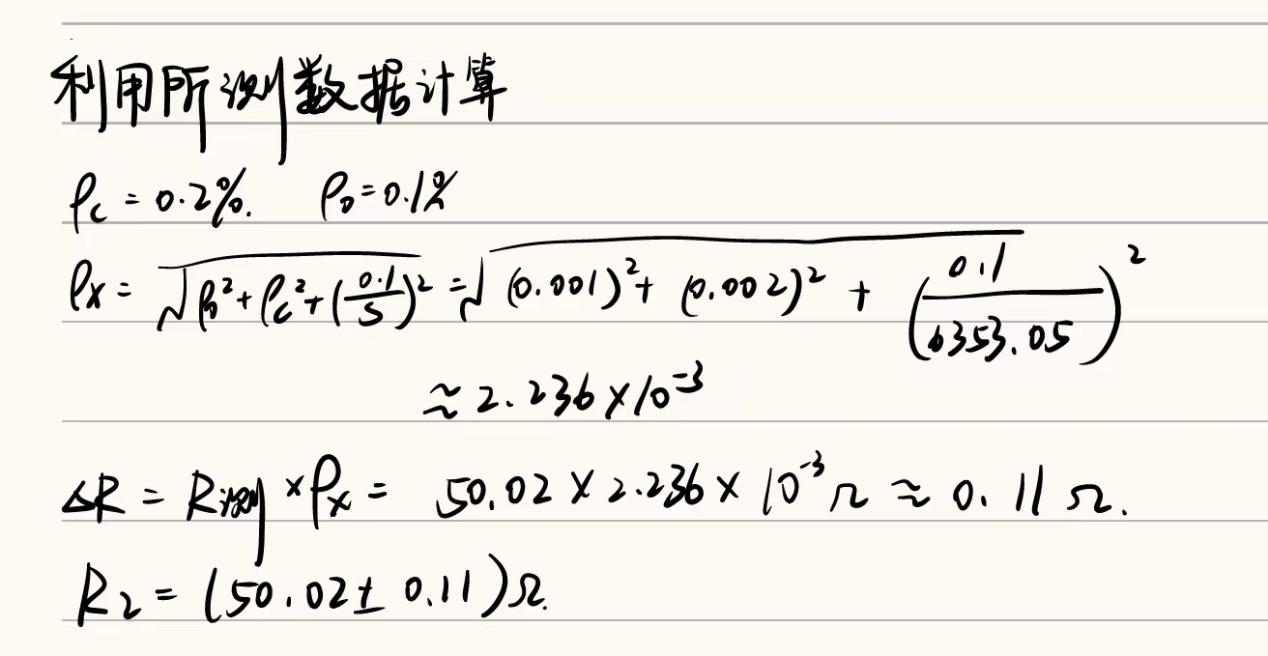 利用所测数据计算
ρc = 0.2%. ρ₀ = 0.1%
ρx = √(ρ₀² + ρc² + (0.1/S)²) = √((0.001)² + (0.002)² + (0.1/6353.05)²)
≈ 2.236 × 10⁻³
ΔR = R测 × ρx = 50.02 × 2.236 × 10⁻³ Ω ≈ 0.11 Ω.
R₂ = (50.02 ± 0.11) Ω.